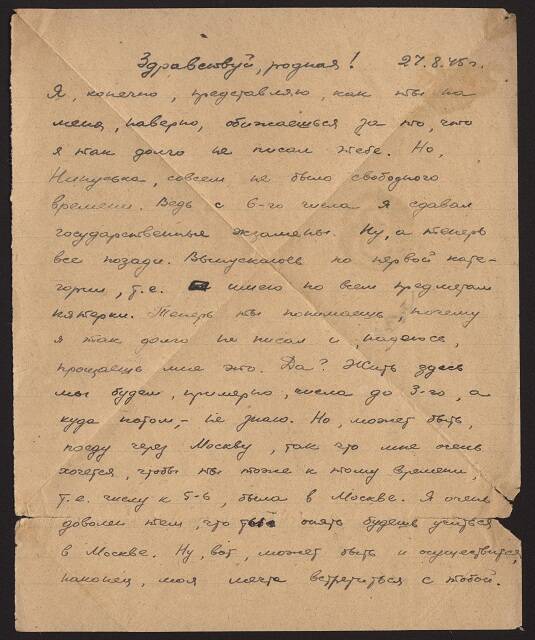 Здравствуй, родная! 27.8.45 г.
Я, конечно, представляю, как ты на
меня, наверно, обижаешься за то, что
я так долго не писал тебе. Но,
Нинуська, совсем не было свободного
времени. Ведь с 6-го числа я сдавал
государственные экзамены. Ну, а теперь
все позади. Выпускаюсь по первой кате-
гории, т.е. имею по всем предметам
пятерки. Теперь ты понимаешь, почему
я так долго не писал и, надеюсь,
прощаешь мне это. Да? Жить здесь
мы будем, примерно, числа до 3-го, а
куда потом, – не знаю. Но, может быть,
поеду через Москву, так что мне очень
хочется, чтобы ты тоже к тому времени,
т.е. числу к 5-6, была в Москве. Я очень
доволен тем, что опять будешь учиться
в Москве. Ну, вот, может быть и осуществится,
наконец, моя мечта встретиться с тобой.